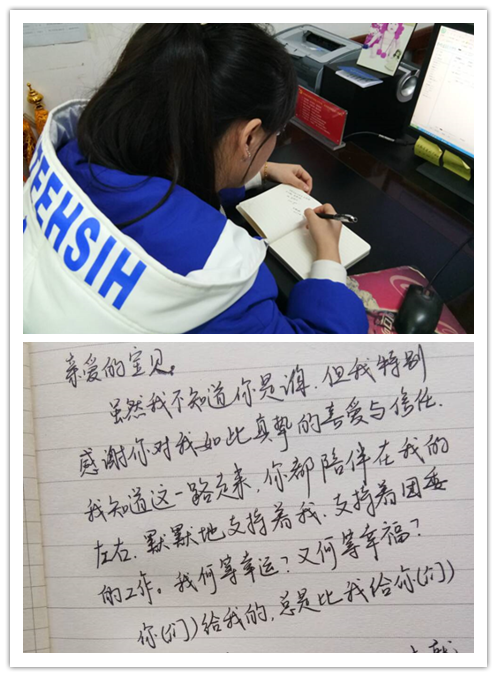 EEHSIH
亲爱的宝贝。
虽然我不知道你是谁，但我特别
感谢你对我如此真挚的喜爱与信任.
我知道这一路走来，你都陪伴在我的
左右，默默地支持着我，支持着团委
的工作。我何等幸运？又何等幸福？
你(们)给我的，总是比我给你(们)